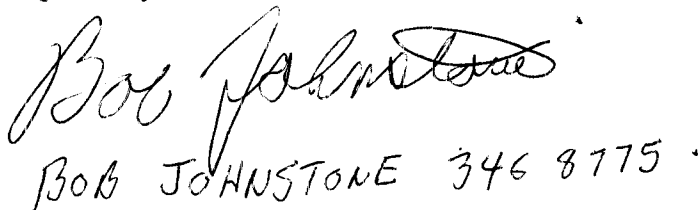 Bob Johnstone
BOB JOHNSTONE 346 8775